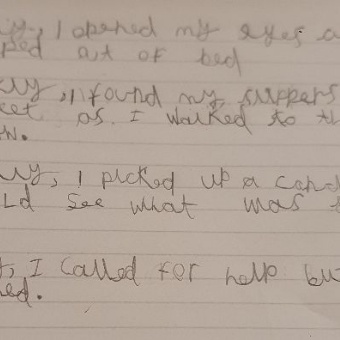 I opened my eyes a
ped out of bed
I found my slippers
eet as I walked to th
w.
I picked up a cand
ld see what was t
I called for help bu
ned.